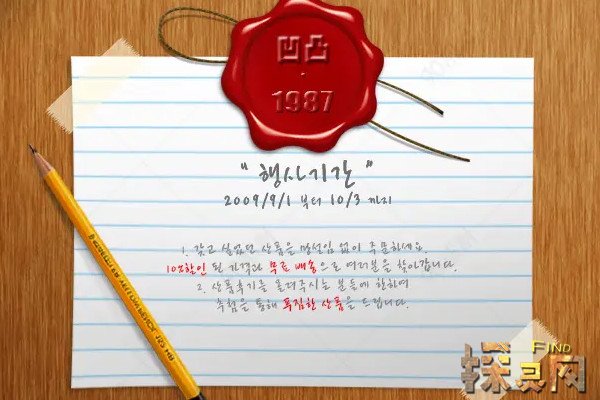 凹凸
·
1987
" 행사기간 "
2009/9/1 부터 10/3 까지
1. 갖고 싶었던 상품을 망설임 없이 주문하세요
10%할인 된 가격과 무료 배송으로 여러분을 찾아갑니다.
2. 상품후기를 올려주시는 분들에 한하여
추첨을 통해 푸짐한 상품을 드립니다.
FIND
探灵网